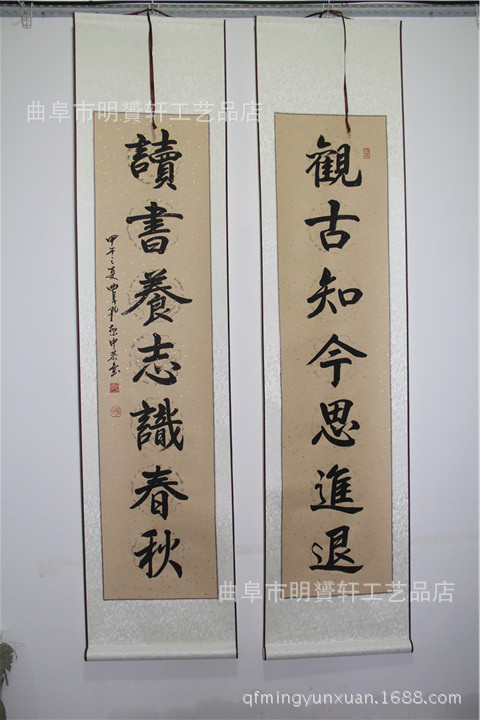 曲阜市明赟轩工艺品店
觀古知今思進退
讀書養志識春秋
甲午之夏曲阜孔
曲阜市明赟轩工艺品店
qfmingyunxuan.1688.com